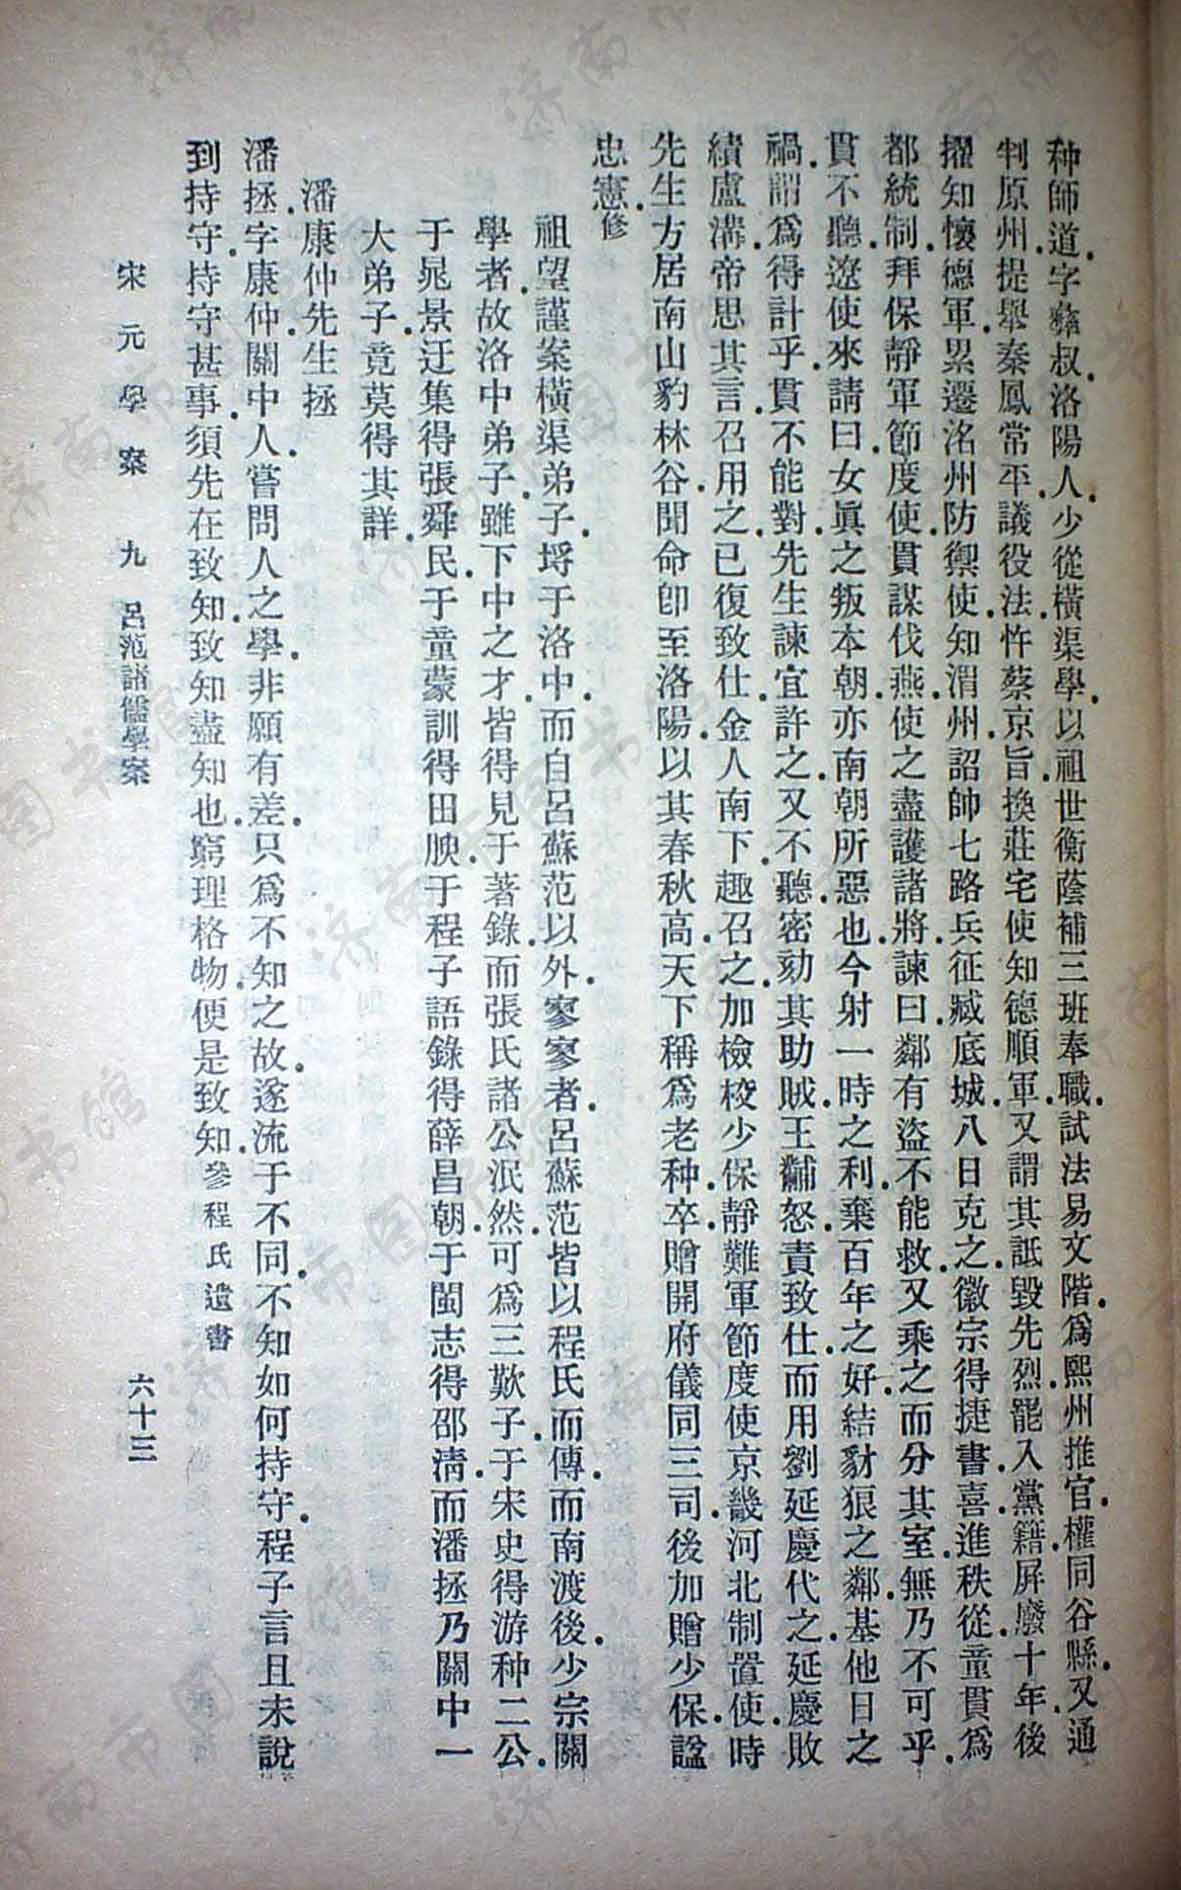 种師道字彝叔洛陽人少從橫渠學以祖世衡蔭補三班奉職試法易文階爲熙州推官權同谷縣又通
判原州提舉秦鳳常平議役法忤蔡京旨換莊宅使知德順軍又謂其詆毀先烈罷入黨籍屏廢十年後
擢知懷德軍累遷洺州防禦使知渭州詔帥七路兵征臧底城八日克之徽宗得捷書喜進秩從童貫爲
都統制拜保靜軍節度使貫謀伐燕使之盡護諸將諫曰鄰有盜不能救又乘之而分其室無乃不可乎
貫不聽遼使來請曰女眞之叛本朝亦南朝所惡也今射一時之利棄百年之好結豺狼之鄰基他日之
禍謂爲得計乎貫不能對先生諫宜許之又不聽密劾其助賊王黼怒責致仕而用劉延慶代之延慶敗
績盧溝帝思其言召用之已復致仕金人南下趣召之加檢校少保靜難軍節度使京畿河北制置使時
先生方居南山豹林谷聞命卽至洛陽以其春秋高天下稱爲老种卒贈開府儀同三司後加贈少保諡
忠憲修
祖望謹案橫渠弟子埒于洛中而自呂蘇范以外寥寥者呂蘇范皆以程氏而傳而南渡後少宗關
學者故洛中弟子雖下中之才皆得見于著錄而張氏諸公泯然可爲三歎子于宋史得游种二公
于晁景迂集得張舜民于童蒙訓得田腴于程子語錄得薛昌朝于閩志得邵淸而潘拯乃關中一
大弟子竟莫得其詳
潘康仲先生拯
潘拯字康仲關中人嘗問人之學非願有差只爲不知之故遂流于不同不知如何持守程子言且未說
到持守持守甚事須先在致知致知盡知也窮理格物便是致知參程氏遺書
宋元學案 九 呂范諸儒學案 六十三